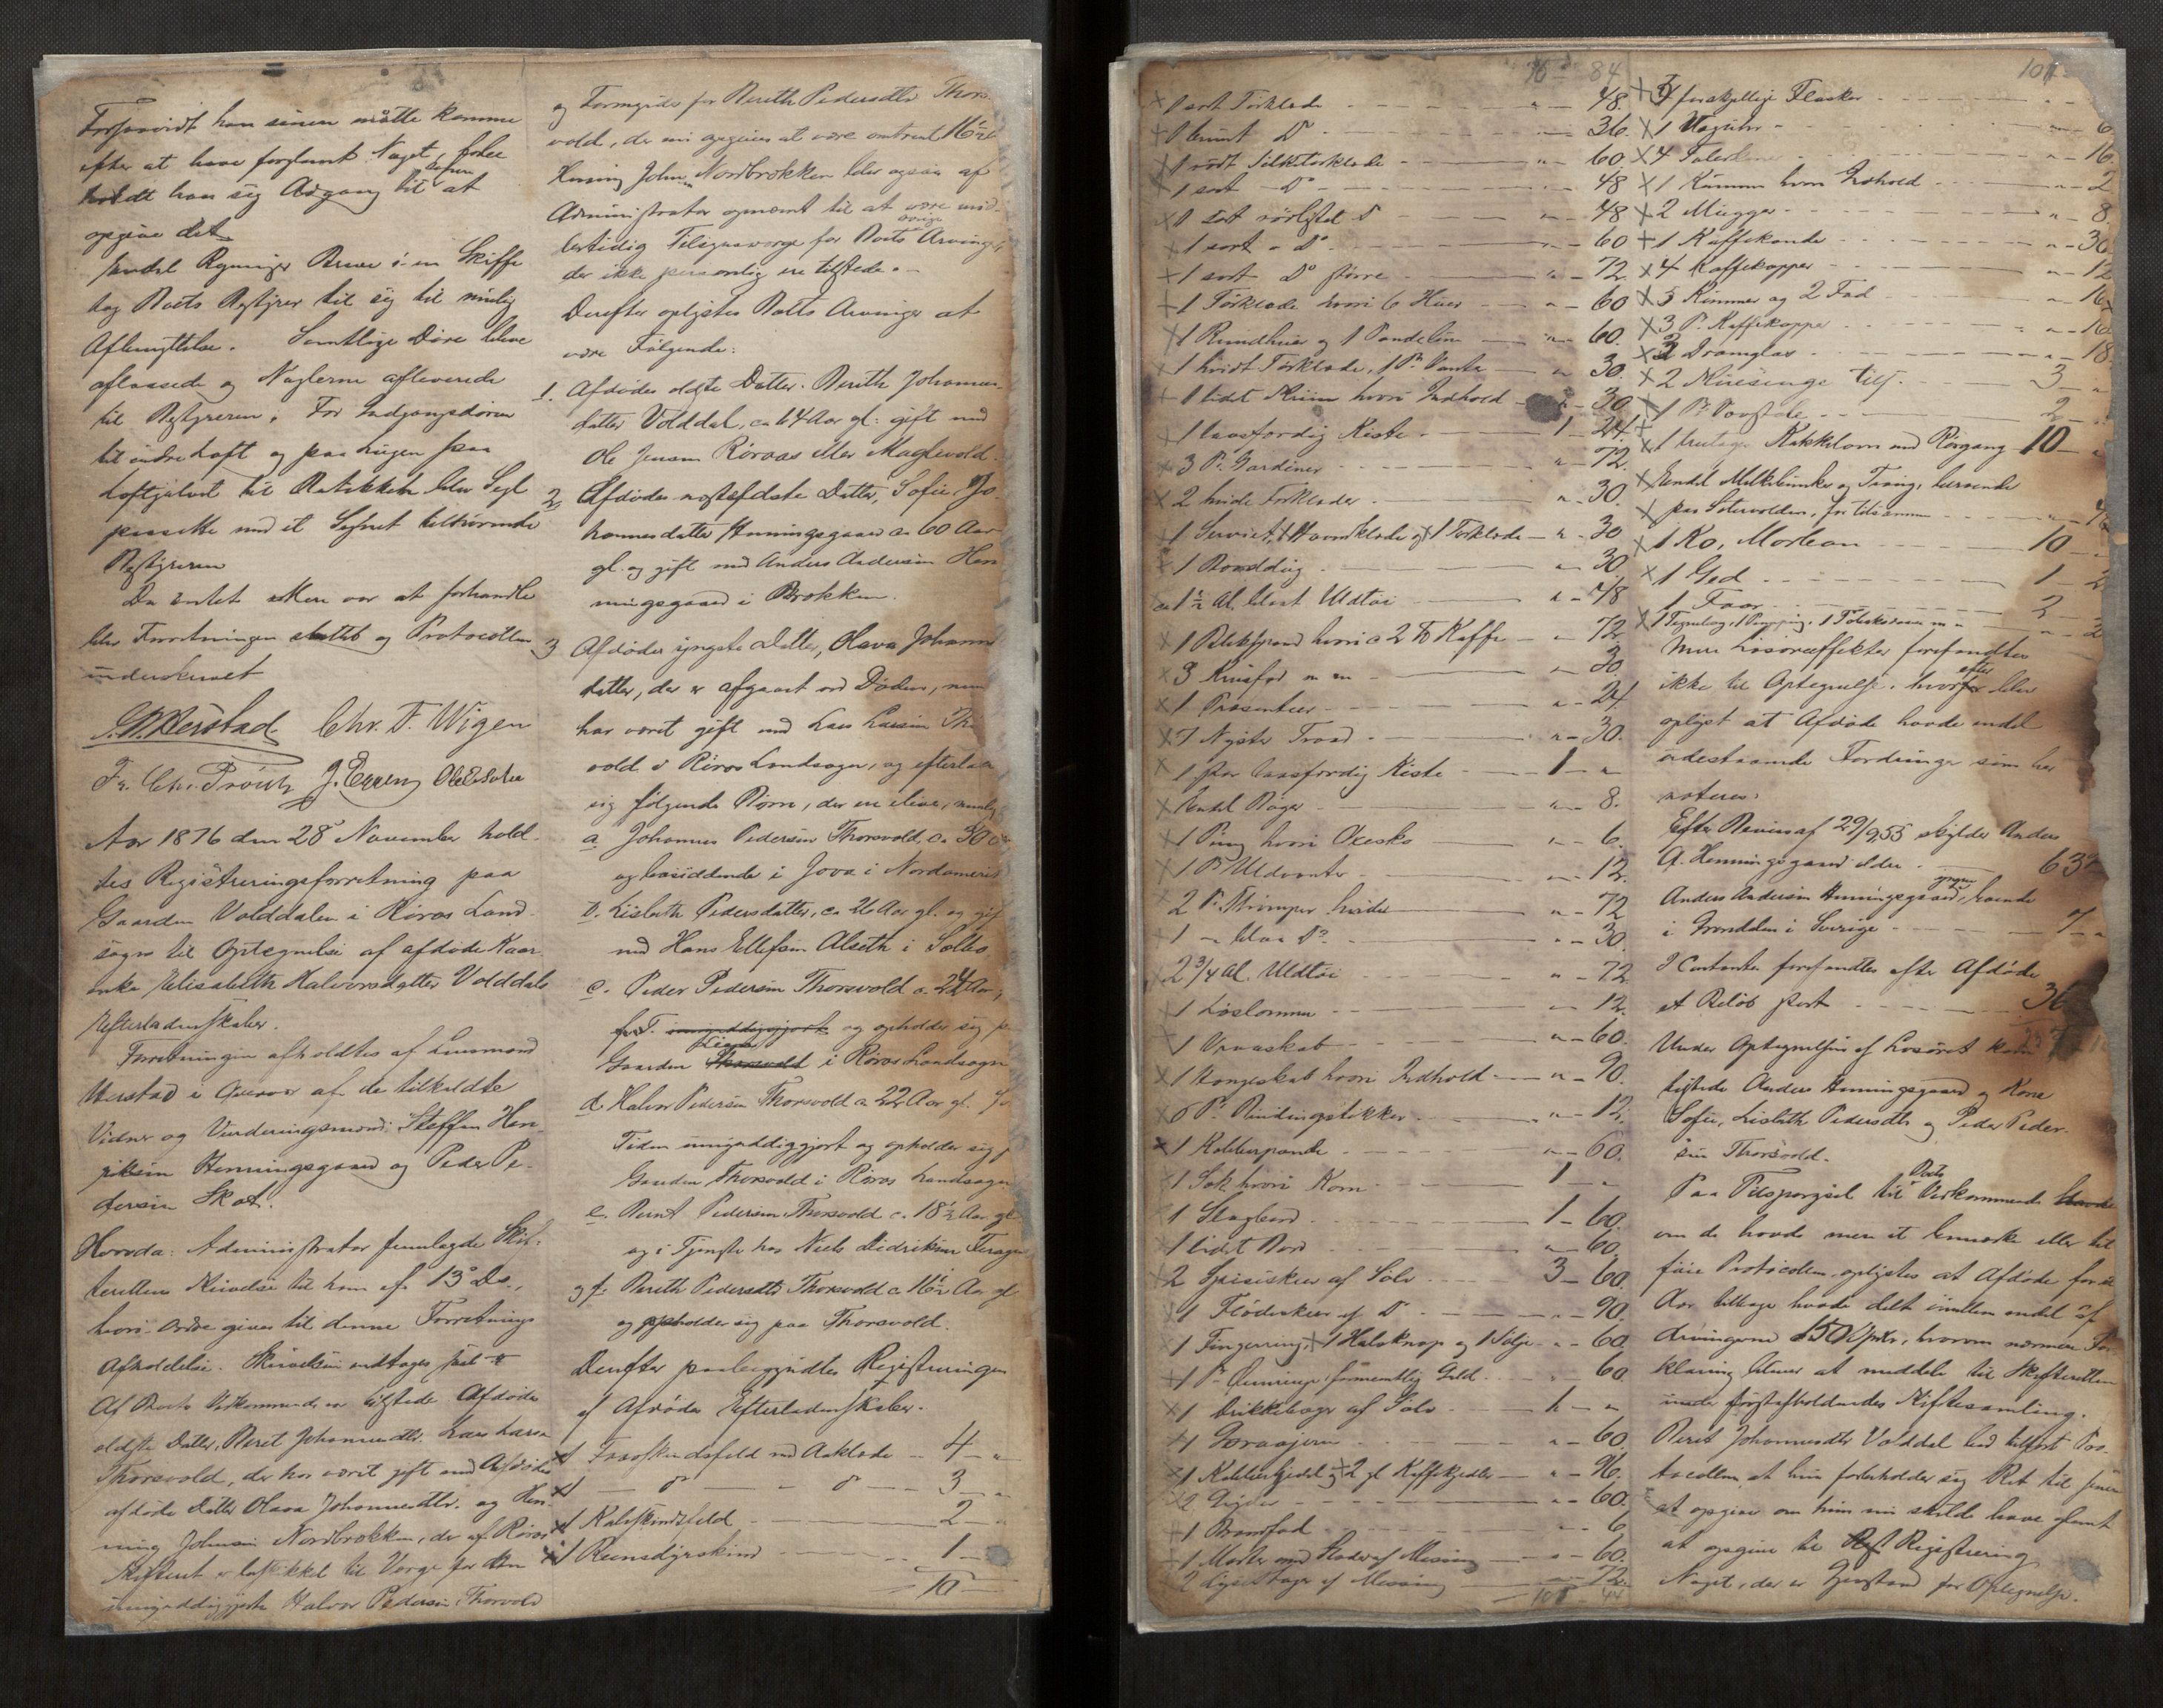 Forsaavidt han senere måtte komme
efter at have forglemt Noget, forbe
holdt han sig Adgang til senere at
opgive det.
Endel Regninger Breve i en Skiffe
tog Boets Bestyrer til sig til nøielig
Afbenyttelse. Samtlige Døre bleve
aflaasede og Nøglerne afleverede
til Bestyreren. For Indgangsdøren
til indre Loft og paa Lugen paa
Loftgulvet til blev Segl
paasatte med et Signet tilhørende
Bestyreren
Da intet mere var at forhandle
blev Forretningen sluttet og Protocollen
underskrevet
Werstad Chr. F. Wigen
Fr. Chr. Prøsch J. Eggen
Aar 1876 den 28de November hold-
tes Registreringsforretning paa
Gaarden Volddalen i Røros Land-
sogn til Optegnelse af afdøde Kaar
enke Elisabeth Halvorsdatter Volddals
Efterladenskaber.
Forretningen afholdtes af Lensmand
Werstad i Overvær af de tilkaldte
Vidner og Vurderingsmænd: Steffen Hen-
riksen Henningsgaard og Peder Pe-
dersen Skot.
Hvorda: Administrator fremlagde Skif-
terettens Skrivelse til ham af 13de Ds.,
hvori Ordre gives til denne Forretnings
Afholdelse. Skrivelsen
Af Boets Vedkommende var tilstede Afdødes
ældste Datter, Beret Johannesdtr. Lars Larsen
Thorsvold, der har været gift med Afdødes
afdøde Datter Olava Johannesdtr. og Hen-
ning Johnsen Nordbrokken, der af Røros
Skifteret er beskikket til Verge for den
umyndiggjorte Halvor Pedersen Thorsvold
og Formynder for Bereth Pedersdtr Thors-
vold, der nu opgives at være omtrent 16½
Henning Johnsen Nordbrokken blev ogsaa af
Administrator opnævnt til at være mid-
lertidig Tilsynsverge for Boets øvrige Arvinger,
der ikke personlig ere tilstede. -
Derefter oplystes Boets Arvinger at
være Følgende:
1. Afdødes ældste Datter Bereth Johannes-
datter Volddal, ca 64 Aar gl. gift med
Ole Jensen Røraas eller Maglevold.
2. Afdødes næstældste Datter, Sofie Jo-
hannesdatter Henningsgaard ca 60 Aar
gl. og gift med Anders Andersen Hen
ningsgaard i Brekken.
3 Afdødes yngste Datter, Olava Johannes
datter, der er afgaaet ved Døden, men
har været gift med Lars Larsen Thors
vold i Røros Landsogn, og efterladt
sig følgende Børn, der ere ilive, nemlig
a. Johannes Pedersen Thorsvold, ca 30 Aar
og bosiddende i Jova i Nordamerika
b. Lisbeth Pedersdatter, ca 26 Aar gl. og gift
med Hans Ellefsen Alseth i Selbo
c. Peder Pedersen Thorsvold ca 24 Aar,
f. T. umyndiggjort og opholder sig p
Gaarden Thorsvold i Røros Landsogn
d. Halvor Pedersen Thorsvold ca 22 Aar gl. for
Tiden umyndiggjort og opholder sig p
Gaarden Thorsvold i Røros Landsogn
e. Bernt Pedersen Thorsvold ca 18½ Aar gl
og i Tjeneste hos Niels Didriksen Feragen
og f. Bereth Pedersdtr Thorsvold ca 16½ Aar gl
og opholder sig paa Thorsvold.
Derefter paabegyndtes Registreringen
af Afdødes Efterladenskaber.
1 Faareskindsfeld med Aaklæde - 4 - "
1 - do - " do - 3 - "
1 Kalveskindsfeld - 2 - "
1 Reensdyrskind - 1 -
10 -
10 - 84
1 sort Tørklæde - " - 48.
1 brunt Do - " - 36.
1 rødt Silketørklæde - " - 60.
1 sort - Do - 48
1 sort Do " - 48
1 sort - Do - 60
1 sort Do større - " - 72
1 Tørklæde hvori 6 Huer - " - 60
1 Rundhue og 1 Pandelin - " - 60.
1 hvidt Tørklæde, 1 Pr. Vanter - " 30.
1 lidet Skrin hvori Indhold - " - 30
1 laasfærdig Kiste - 1 - 24
3 Pr. Gardiner - " - 72.
2 hvide Forklæder - " - 30.
1 Serviet, 1 Haandklæde og 1 Tørklæde - " - 30
1 Bomuldstøj - " - 30
ca 1½ Al. blaat Uldtøi - " - 48
1 hvori ca 2 ℔ Kaffe - " - 72
3 - " - 30
1 Præsenteer - " - 24
7 Nøster Traad - " - 30.
1 større laasfærdig Kiste - 1 - "
Endel Bøger - " - 8.
1 Pung hvori - " - 6.
1 Pr Uldvanter - " - 12.
2 Pr. Strømper hvide - " - 72
1 - blaa Do. - " - 30.
2 3/4 Al. Uldtøi - " - 72
1 Løslomme - " - 12.
1 Vraaskab - " - 60.
1 Hængeskab hvori Indhold - " - 90.
6 Pr. Bindingsstikker - " - 12.
1 Kobberpande - " - 60.
1 Sæk hvori Korn - 1 - "
1 Slagbord - 1 - 60.
1 lidet Bord - " - 60.
2 Spiseskeer af Sølv - 3 - 60.
1 Flødeskee af Do - " - 90.
1 Fingerring, 1 Halsknap og 1 Sølje - " - 60.
1 Pr Ørenringe, formentlig Guld - " - 60.
1 Drikkebæger af Sølv - 4 - "
1 - " - 60.
1 Kobberkjedel og 2 gl. Kaffekjedler - " - 96.
2 Gryder - " - 60.
1 Brændfad - " - 6.
1 Morter med Støder af Messing - " - 60.
2 Lysestager af Messing - " - 72.
101 - 44
101
4 forskjellige Flasker -
1 Væguhr - " - 6
4 Talerkener - " - 16
1 Kumme hvori Indhold - " - 2
2 Mugger - " - 8
1 Kaffekande - " - 30
4 Kaffekopper - " - 12
5 Kummer og 2 Fad - " - 16
3 Pr. Kaffekopper - " - 16
2 Dramglas - " - 18.
2 tils. - 3 -
1 Pr. Vævstole - 2 -
1 Kakkelovn med Rørgang - 10 - "
Endel Melkebunker og Tiner, beroende
paa Sætervolden, for tilsammen - " - 4
1 Ko, Morlean - 10 -
1 Ged - 1 - 2
1 Faar - 2 -
Mere Løsøreeffekter forefandtes
ikke til Optegnelse, hvorefter blev
oplyst at Afdøde havde endel
udestaaende Fordringer som her
noteres:
Efter Bevis af 29/9 55 skylder Anders
A. Henningsgaard ældre - 632
Anders Andersen Henningsgaard yngre, boende
i Grønddalen i Sverige - 7 - "
I Contanter forefandtes efter Afdøde
et Beløb stort - 36
Under Optegnelsen af Løsøret kom
tilstede Anders Henningsgaard og Kone
Sofie, Lisbeth Pedersdtr. og Peder Peder-
sen Thorsvold.
Paa Tilspørgsel til Boets Vedkommende
om de havde mere at bemærke eller til
føie Protocollen, oplystes at Afdøde for et
Aar tilbage havde delt imellem endel af
Arvingerne 150 Spdlr., hvorom nærmere For
klaring bliver at meddele til Skifteretten
under førstafholdendes Skiftesamling.
Beret Johannesdtr Volddal lod tilført Pro-
tocollen, at hun forbeholder sig Ret til senere
at opgive om hun nu skulde have glemt
at opgive til Registrering
Noget, der er Gjenstand for Optegnelse.